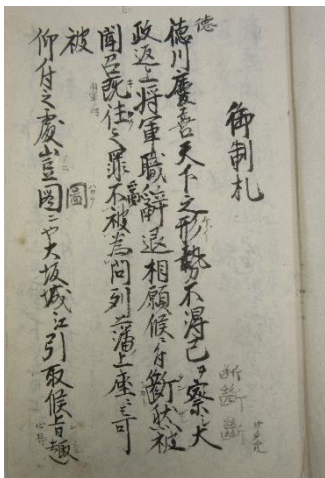 御制札
徳
徳川慶喜天下之形勢不得已ヲ察大
政返上将軍職辞退相願候ニ付断然被
聞召既往之罪不被為問列藩上座ニ可
被
仰付之處豈圖ニや大坂城江引取候旨趣
圖
断